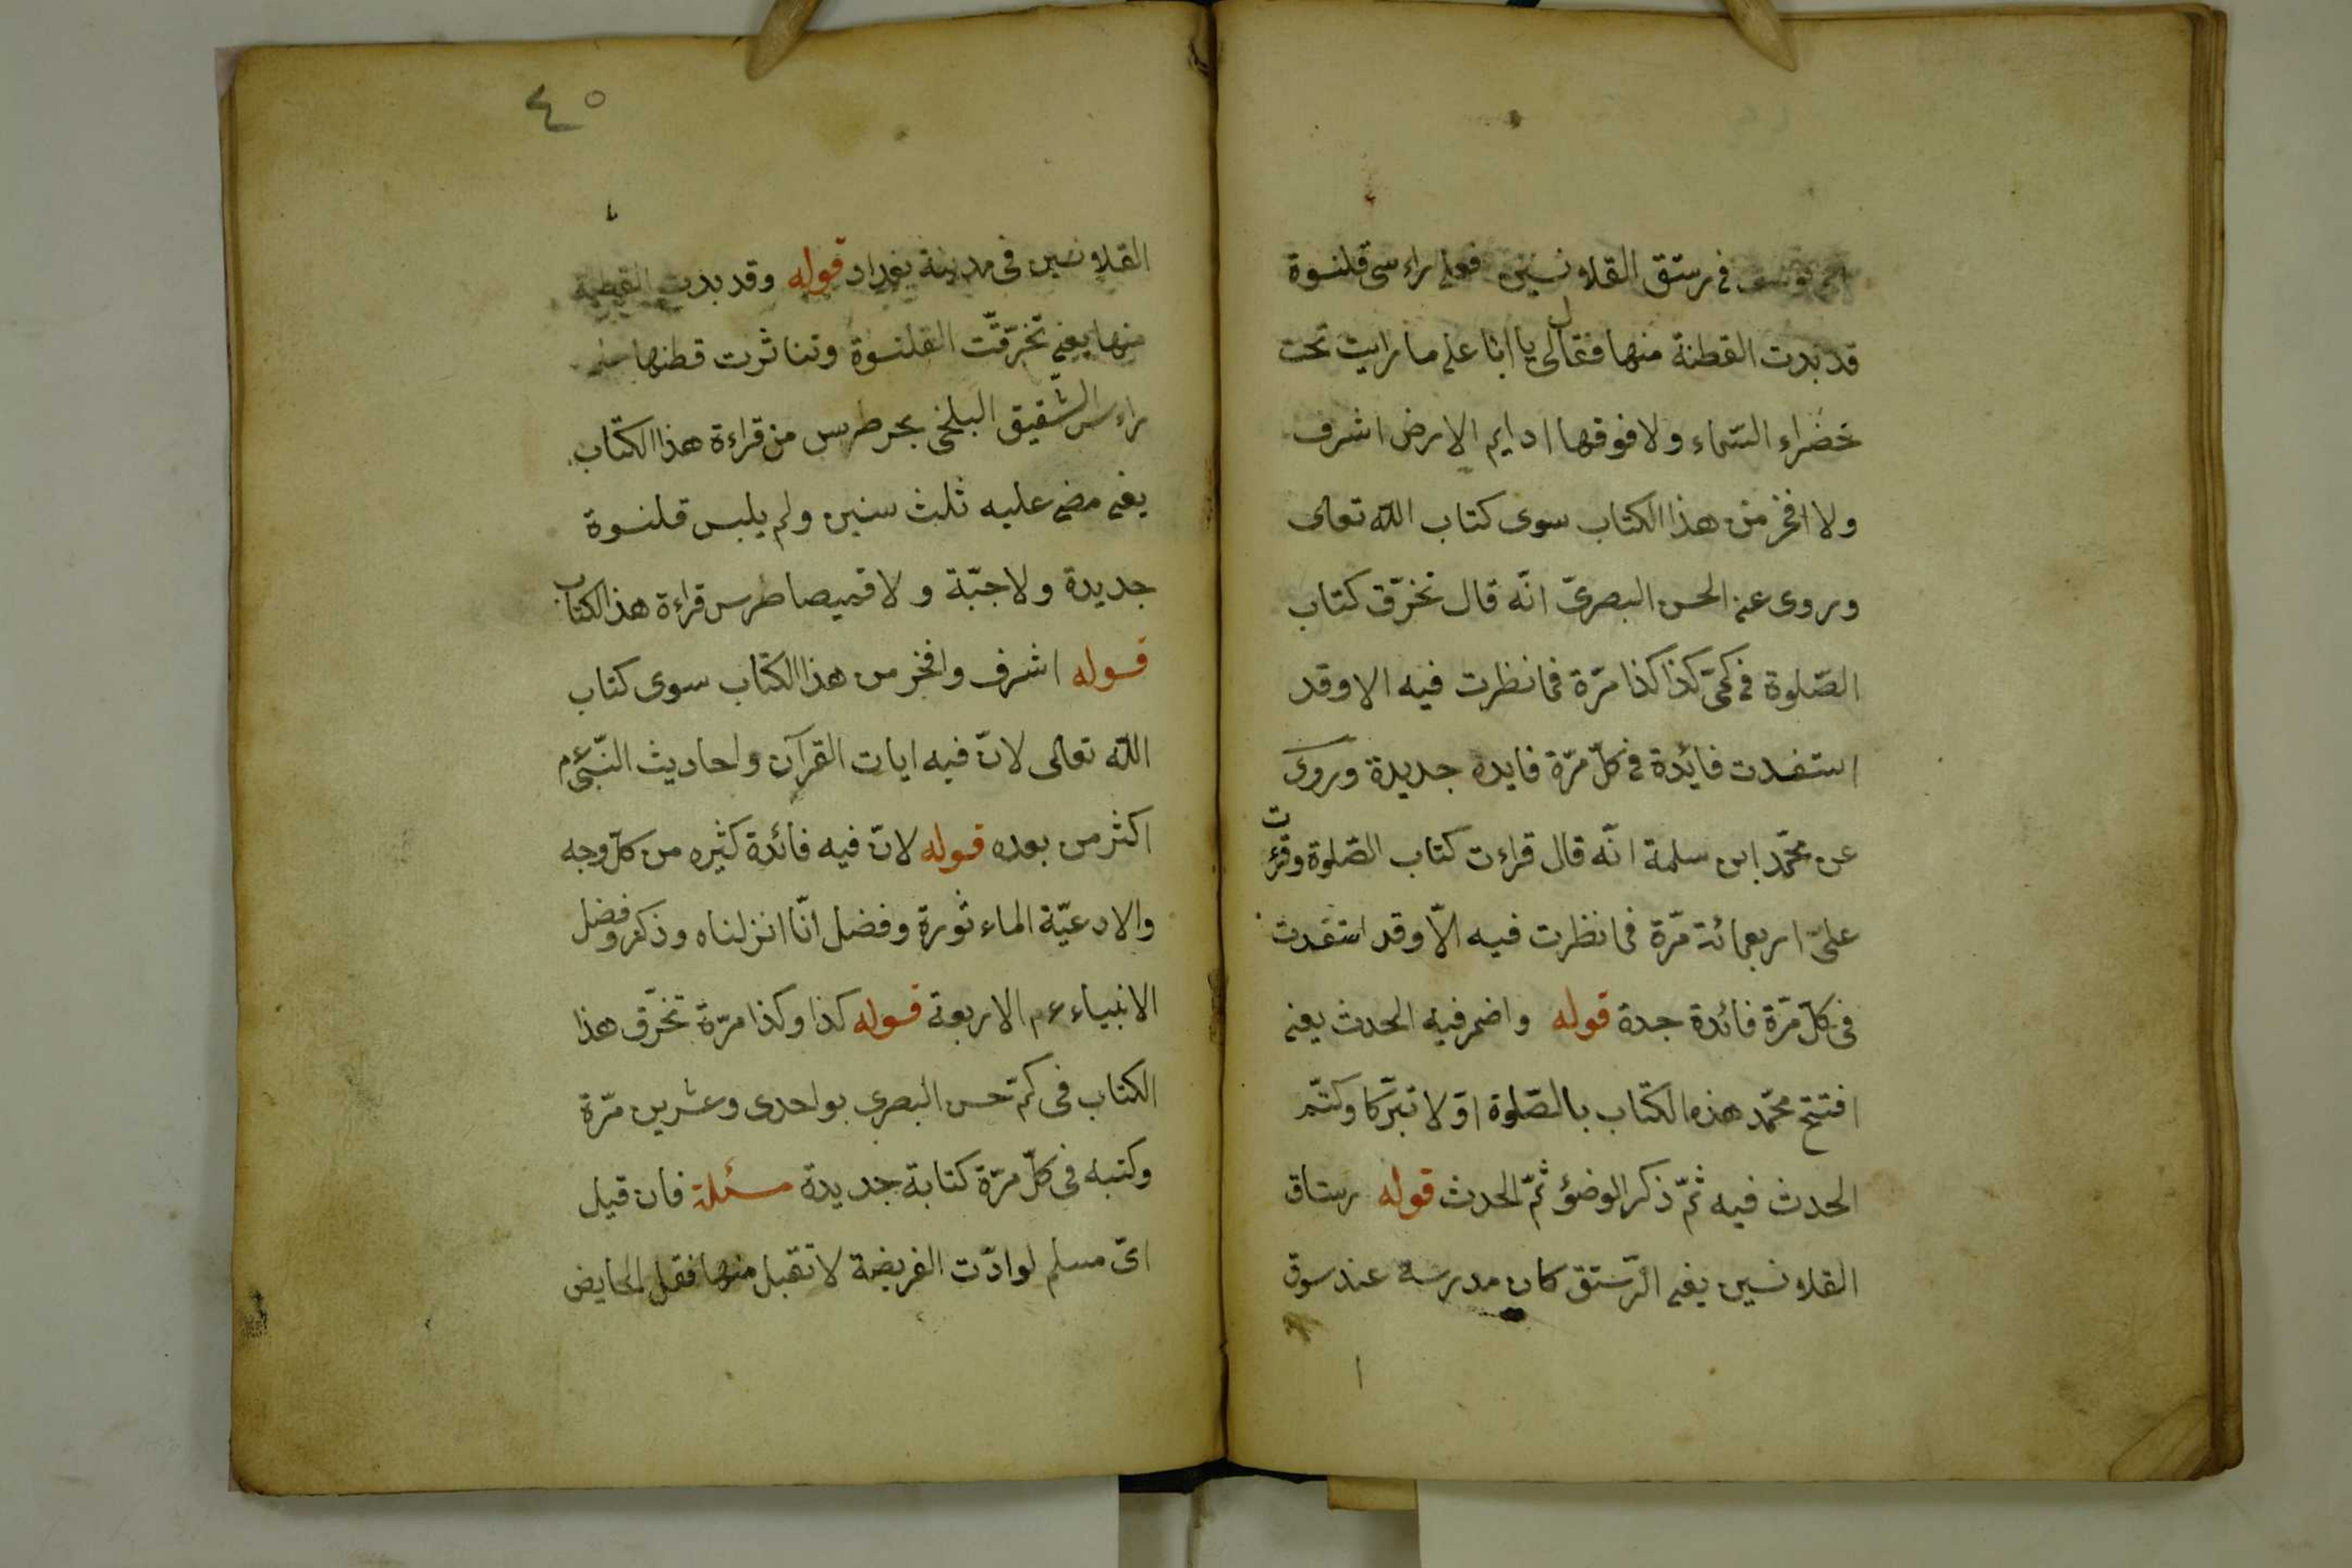 في رستق القلانسين فعلى راءسى قلنسوة
قد بدت القطنة منها فقال لى يا ابا على ما رايت تحت
خضراء السّماء ولا فوقها اديم الارض اشرف
ولا افخر من هذا الكتاب سوى كتاب الله تعالى
وروى عن الحسن البصرىّ انّه قال تخرّق كتاب
الصّلوة فى كمّى كذا كذا مرّة فما نظرت فيه الا وقد
استفدت فائدة فى كلّ مرّة فايده جديدة وروى
عن محمّد ابن سلمة انّه قال قراءت كتاب الصّلوة وقرئت
علىّ اربعمائة مرّة فما نظرت فيه الّا وقد استفدت
فى كلّ مرّة فائدة جدة قوله واضمر فيه الحدث يعنى
افتتح محمّد هذه الكتاب بالصّلوة اوّلا تبرّكا وكتّم
الحدث فيه ثمّ ذكر الوضؤ ثمّ الحدث قوله رستاق
القلانسين يعنى الرّستق كان مدرسة عند سوق
٤٥
القلانسين فى مدينة بغداد قوله وقد بدت القطنة
منها يعنى تخرّقت القلنسوة وتناثرت قطنها
راءس الشّقيق البلخى بحر طرس من قراءة هذا الكتاب
يعنى مضى عليه ثلث سنين ولم يلبس قلنسوة
جديدة ولا جبّة ولا قميصا طرس قراءة هذا الكتاب
قوله اشرف وافخر من هذا الكتاب سوى كتاب
الله تعالى لانّ فيه ايات القرآن واحاديث النّبىّ عم
اكثر من بعده قوله لانّ فيه فائدة كثيره من كلّ وجه
والادعيّة الماءثورة وفضل انّا انزلناه وذكر وفضل
الانبياء عم الاربعة قوله كذا وكذا مرّة تخرّق هذا
الكتاب فى كمّ حسن البصرى بواحدى وعشرين مرّة
وكتبه فى كلّ مرّة كتابة جديدة مسئلة فان قيل
اىّ مسلم لو ادّت الفريضة لا تقبل منها فقل الحايض